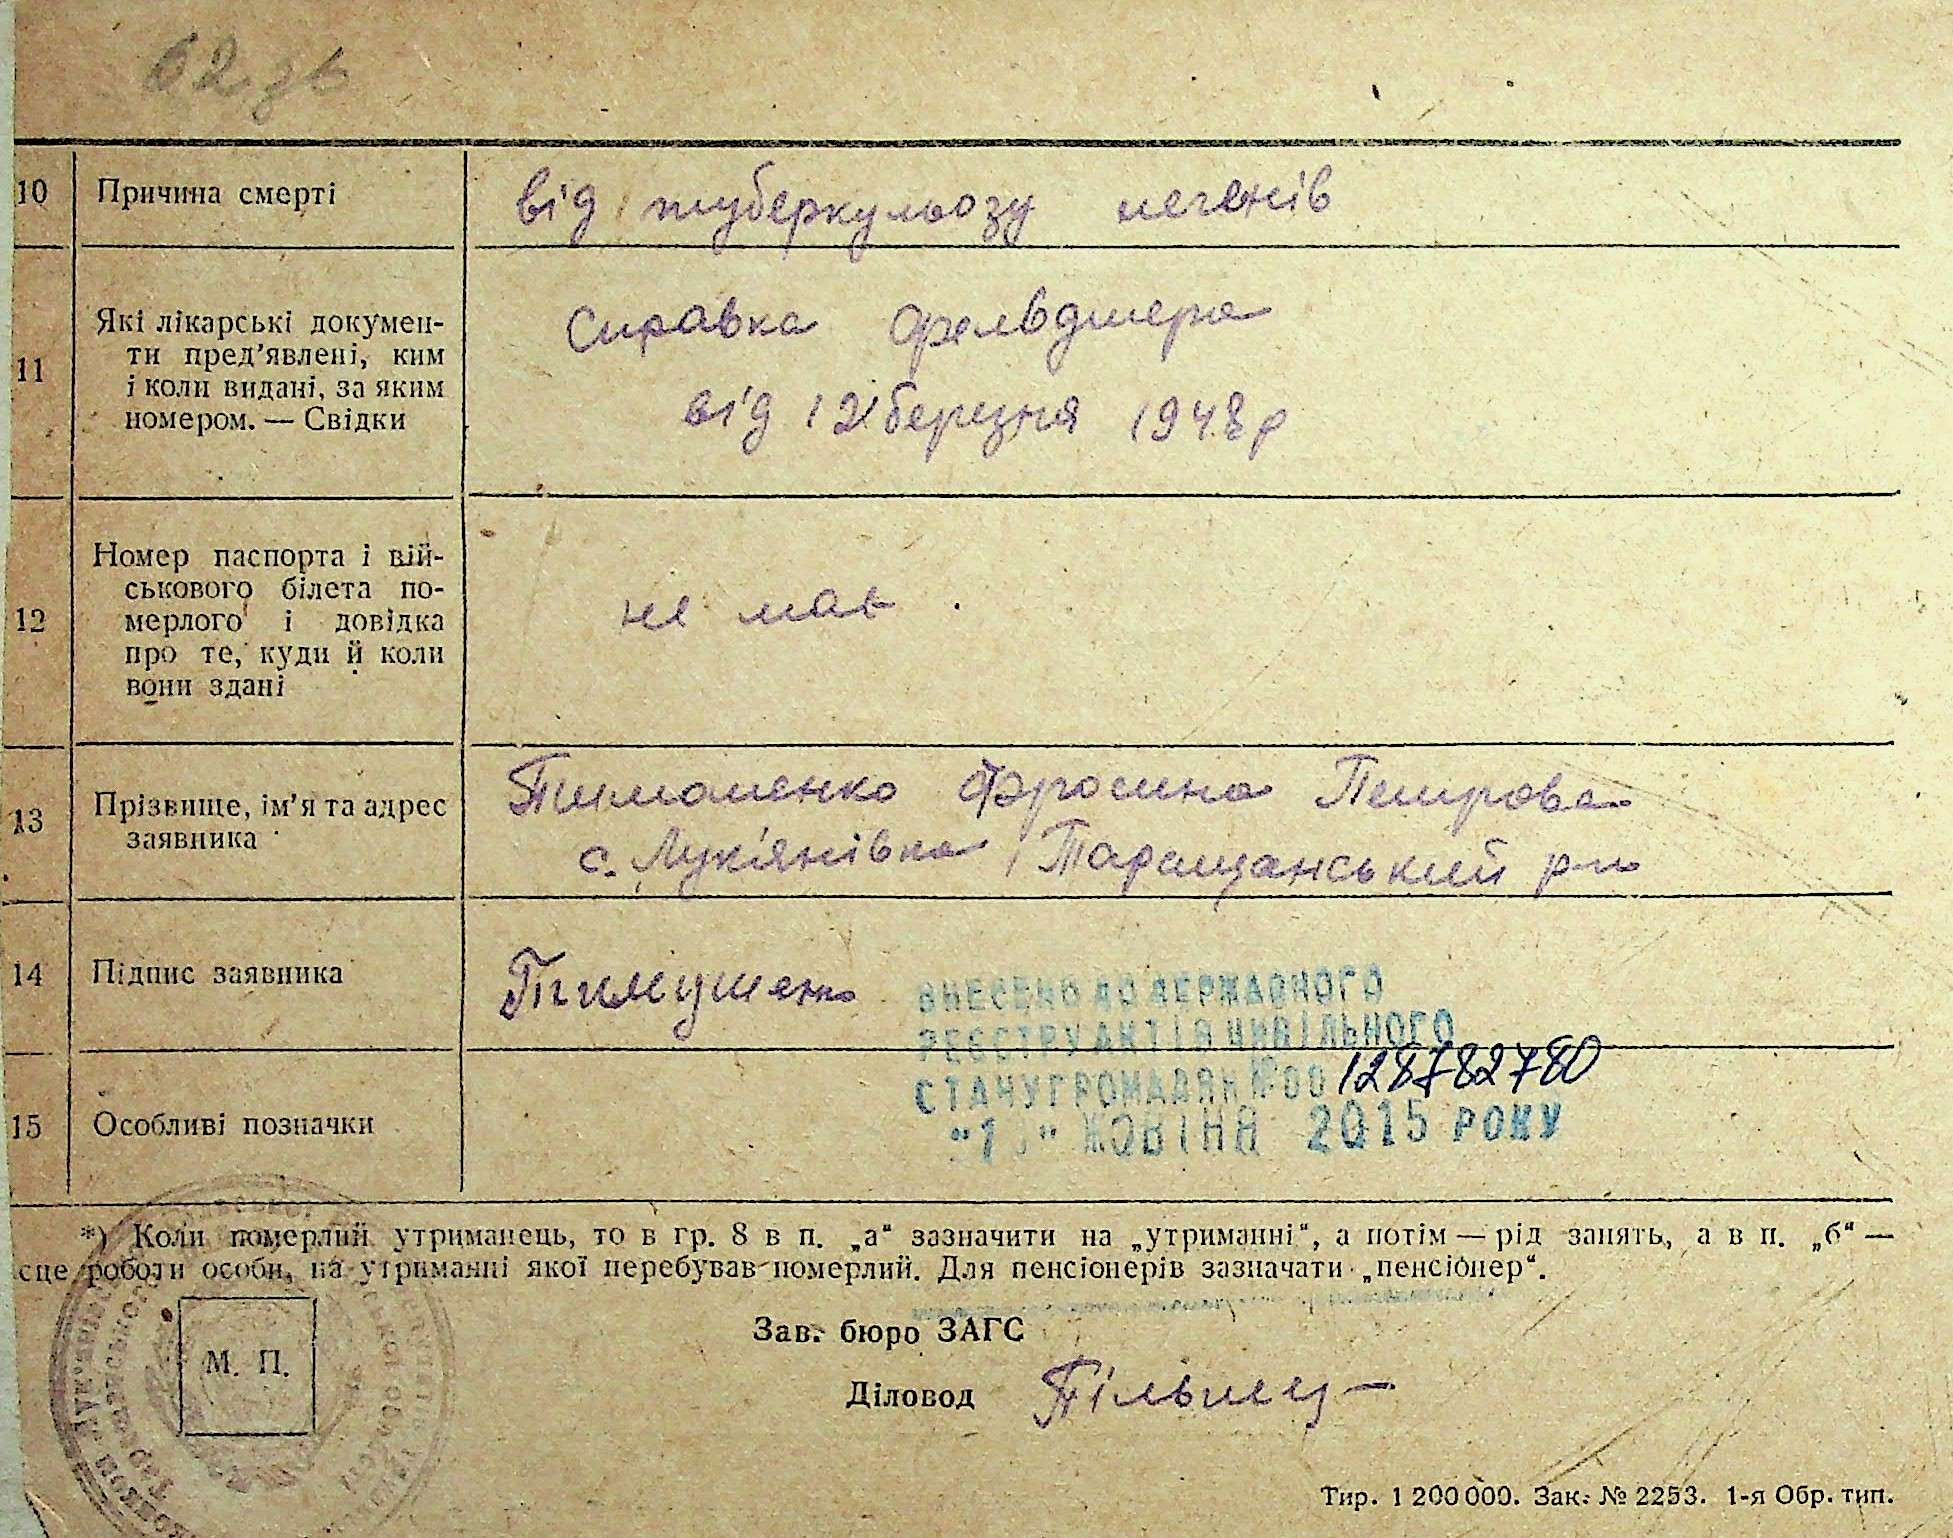 62 зв
10 Причина смерті від туберкульозу легенів
11 Які лікарські докумен-
ти пред'явлені, ким
і коли видані, за яким
номером. — Свідки
Справка фельвдшера
від 12 березня 1948 р
12 Номер паспорта і вій-
ськового білета по-
мерлого і довідка
про те, куди й коли
вони здані
не має .
13 Прізвище, ім'я та адрес
заявника
Тимошенко Фросина Петрова
с. Лук'янівка Таращанський р-н
14 Підпис заявника Тимушенко
ВНЕСЕНО ДО ДЕРЖАВНОГО
РЕЄСТРУ АКТІВ ЦИВІЛЬНОГО
СТАНУ ГРОМАДЯН № 00 128782780
ЖОВТНЯ 2015 РОКУ
15 Особливі позначки
*) Коли померлий утриманець, то в гр. 8 в п. „а“ зазначити на „утриманні“, а потім — рід занять, а в п. „б“ —
сце роботи особи, на утриманні якої перебував померлий. Для пенсіонерів зазначати „пенсіонер“.
Зав. бюро ЗАГС
М. П.
Діловод
Тир. 1 200 000. Зак. № 2253. 1-я Обр. тип.